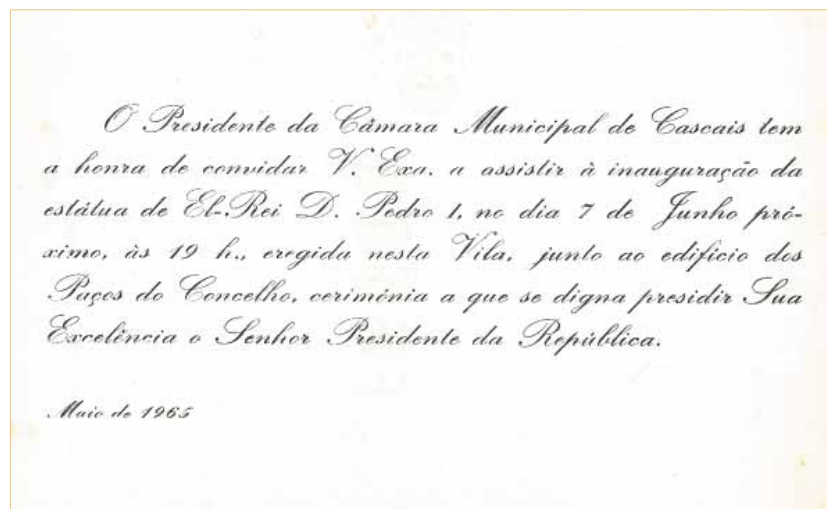 O Presidente da Câmara Municipal de Cascais tem
a honra de convidar V. Exa. a assistir à inauguração da
estátua de El-Rei D. Pedro I, no dia 7 de Junho pró-
ximo, às 19 h., eregida nesta Vila, junto ao edifício dos
Paços do Concelho, cerimónia a que se digna presidir Sua
Excelência o Senhor Presidente da República.
Maio de 1965